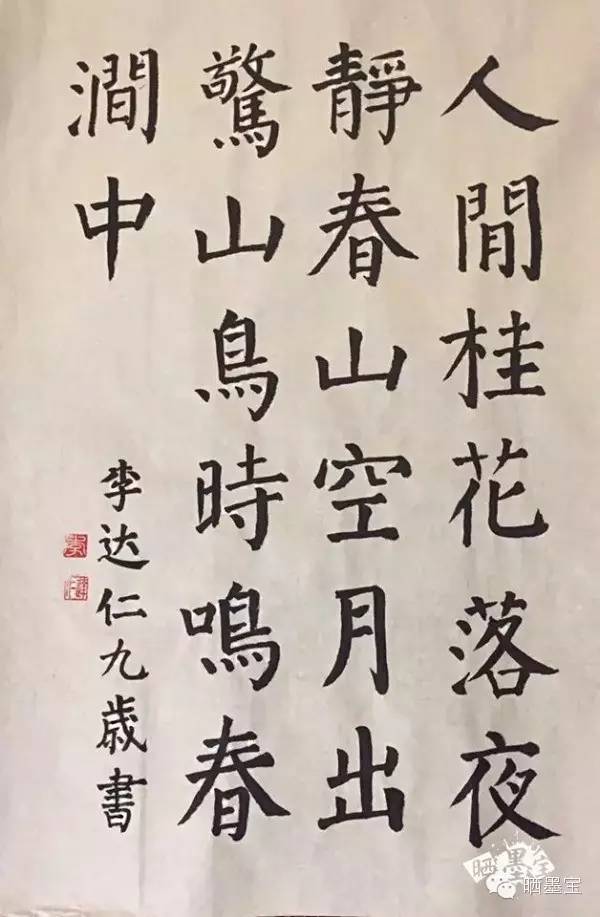 人間桂花落夜
靜春山空月出
驚山鳥時鳴春
澗中
李达仁九歲書
晒墨宝
晒墨宝